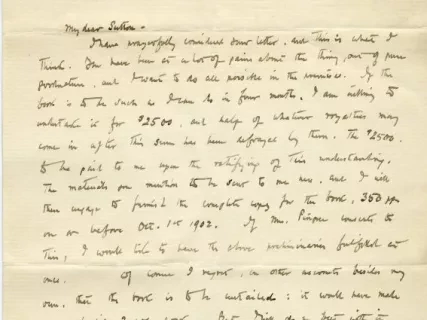 My dear Sutton -
I have prayerfully considered your letter, and this is what I
think. You have been at a lot of pains about the thing, out of pure
goodnature, and I want to do all possible in the premises. If the
book is to be such as I can do in four months, I am willing to
undertake it for $2500, and half of whatever royalties may
come in after this sum has been defrayed by them. The $2500.
to be paid to me upon the ratifying of this understanding.
The materials you mention to be sent to me here, and I will
then engage to furnish the complete copy for the book, 350 pp
on or before Oct. 1st 1902. If Mrs. consents to
this, I would like to have the above preliminaries fulfilled at
once. Of course I regret, on other accounts besides my
own, that the book is to be curtailed: it would have made
But I'll do my best with it